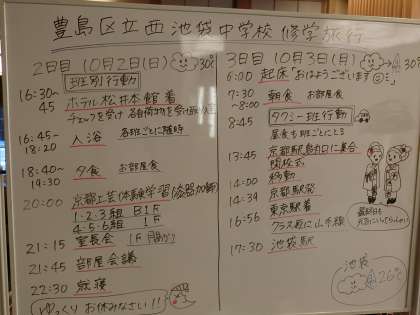 豊島区立西池袋中学校 修学旅行
2日目 10月2日(日) 30℃
班別行動
16:30~45 ホテル松井本館着
チェックを受け 各自荷物を受け取り
16:45~18:20 入浴 各班ごとに随時
18:40~19:30 夕食 お部屋食
20:00 京都工芸体験学習
1・2・3組 B1F
4・5・6組 1F
21:15 室長会 1F
21:45 部屋会議
22:30 就寝
ゆっくりお休みなさい!!
3日目 10月3日(月) 30℃
6:00 起床「おはようございます」
7:30~8:00 朝食 お部屋食
8:45 タクシー班行動
昼食も班ごとにとる
13:45 京都駅烏丸口に集合
閉校式
14:00 移動
14:39 京都駅発
16:56 東京駅着
クラス毎に山手線
17:30 池袋駅
最終日も
元気にいってらっしゃい
池袋
26℃